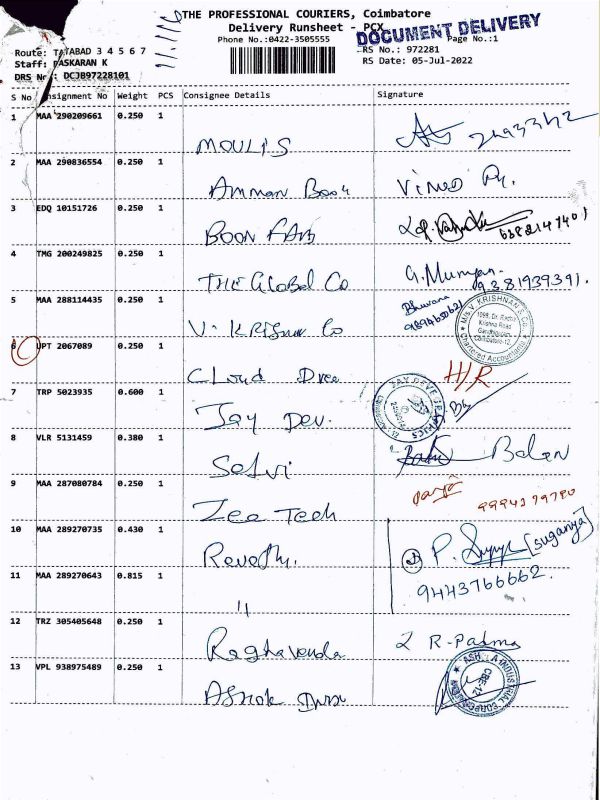 THE PROFESSIONAL COURIERS, Coimbatore
Delivery Runsheet - PCX
DOCUMENT DELIVERY
Phone No.:0422-3505555
Page No.:1
Route: TATABAD 3 4 5 6 7
RS No.: 972281
Staff: BASKARAN K
RS Date: 05-Jul-2022
DRS No: DCJB97228101
S No Consignment No Weight PCS Consignee Details Signature
1 MAA 290209661 0.250 1
MOULIS
2 MAA 290836554 0.250 1
Amman Book
3 EDQ 10151726 0.250 1
BOON FAB
4 TMG 200249825 0.250 1
THE Global Co G. Murugan 9381939391.
5 MAA 288114435 0.250 1
V. KRISHN Co Bhuvana 9894650621
M/s V. KRISHNAN & CO.
1098, Dr. Radha
Krishna Road
Gandhipuram,
Coimbatore-12.
Chartered Accountants
6 UPT 2067089 0.250 1
Cloud Dree H/R
7 TRP 5023935 0.600 1
Jay Dev.
8 VLR 5131459 0.380 1
Selvi Balan
9 MAA 287080784 0.250 1
Zee Tech
10 MAA 289270735 0.430 1
Revathy. P. [Suganya]
9443766662.
11 MAA 289270643 0.815 1
"
12 TRZ 305405648 0.250 1
Raghavenda R-Padma
13 VPL 938975489 0.250 1
Ashok